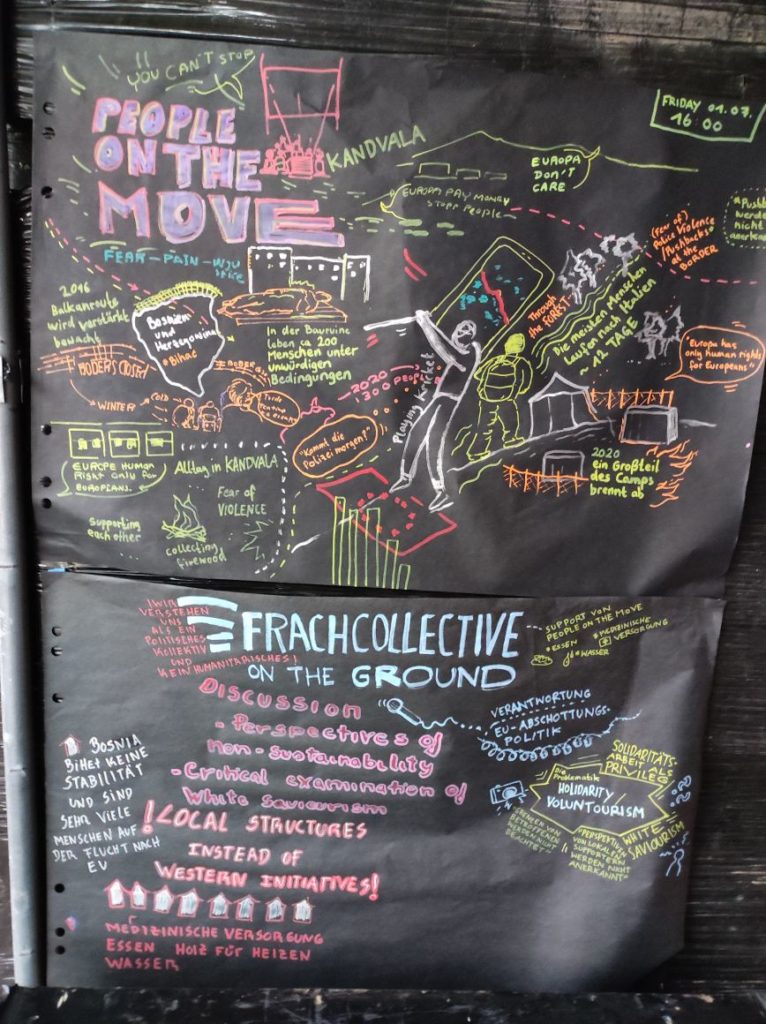 YOU CAN'T STOP
PEOPLE
ON THE
MOVE
KANDVALA
FRIDAY 01.07.
16:00
EUROPA
DON'T
CARE
EUROPA PAY MONEY
STOPP PEOPLE
(Fear of)
Police Violence
/Pushbacks
at the
BORDER
*Pushb
werde
nicht
anerka
FEAR - PAIN -
2016
Balkanroute
wird verstärkt
bewacht
Bosnien
und
Herzegowina
*Bihać
In der Bauruine
leben ca 200
Menschen unter
unwürdigen
Bedingungen
Through
the FOREST
Die meisten Menschen
laufen nach Italien
~ 12 TAGE
Europa has
only human rights
for Europeans"
BODERS CLOSED
WINTER
Cold
2020
1300 PEOPLE
Playing Kricket
"Kommt die
Polizei morgen?"
EUROPE HUMAN
RIGHT ONLY FOR
EUROPIANS.
Alltag in KANDVALA
Fear of
VIOLENCE
supporting
each other
collecting
firewood
2020
ein Großteil
des Camps
brennt ab
!WIR
VERSTEHEN
UNS
ALS EIN
POLITISCHES
KOLLEKTIV
UND
KEIN HUMANITÄRISCHES!
FRACHCOLLECTIVE
ON THE GROUND
SUPPORT VON
PEOPLE ON THE MOVE
*ESSEN *MEDIZINISCHE
VERSORGUNG
*WASSER
DISCUSSION
- Perspectives of
non-sustainability
- Critical examination of
White Saviourism
VERANTWORTUNG
EU-ABSCHOTTUNGS-
POLITIK
BOSNIA
BIHET KEINE
STABILITÄT
UND SIND
SEHR VIELE
MENSCHEN AUF
DER FLUCHT NACH
EU
SOLIDARITÄTS-
ARBEIT
PRIVILEG
Problematik
HOLIDARITY
VOLUNTOURISM
WHITE
SAVIOURISM
GRENZEN VON
BETROFFENEN
WERDEN NICHT
BEACHTET"
"PERSPEKTIVEN
VON LOKALEN
SUPPORTERN
WERDEN NICHT
ANERKANNT"
!LOCAL STRUCTURES
INSTEAD OF
WESTERN INITIATIVES!
MEDIZINISCHE VERSORGUNG
ESSEN HOLZ FÜR HEIZEN
WASSER